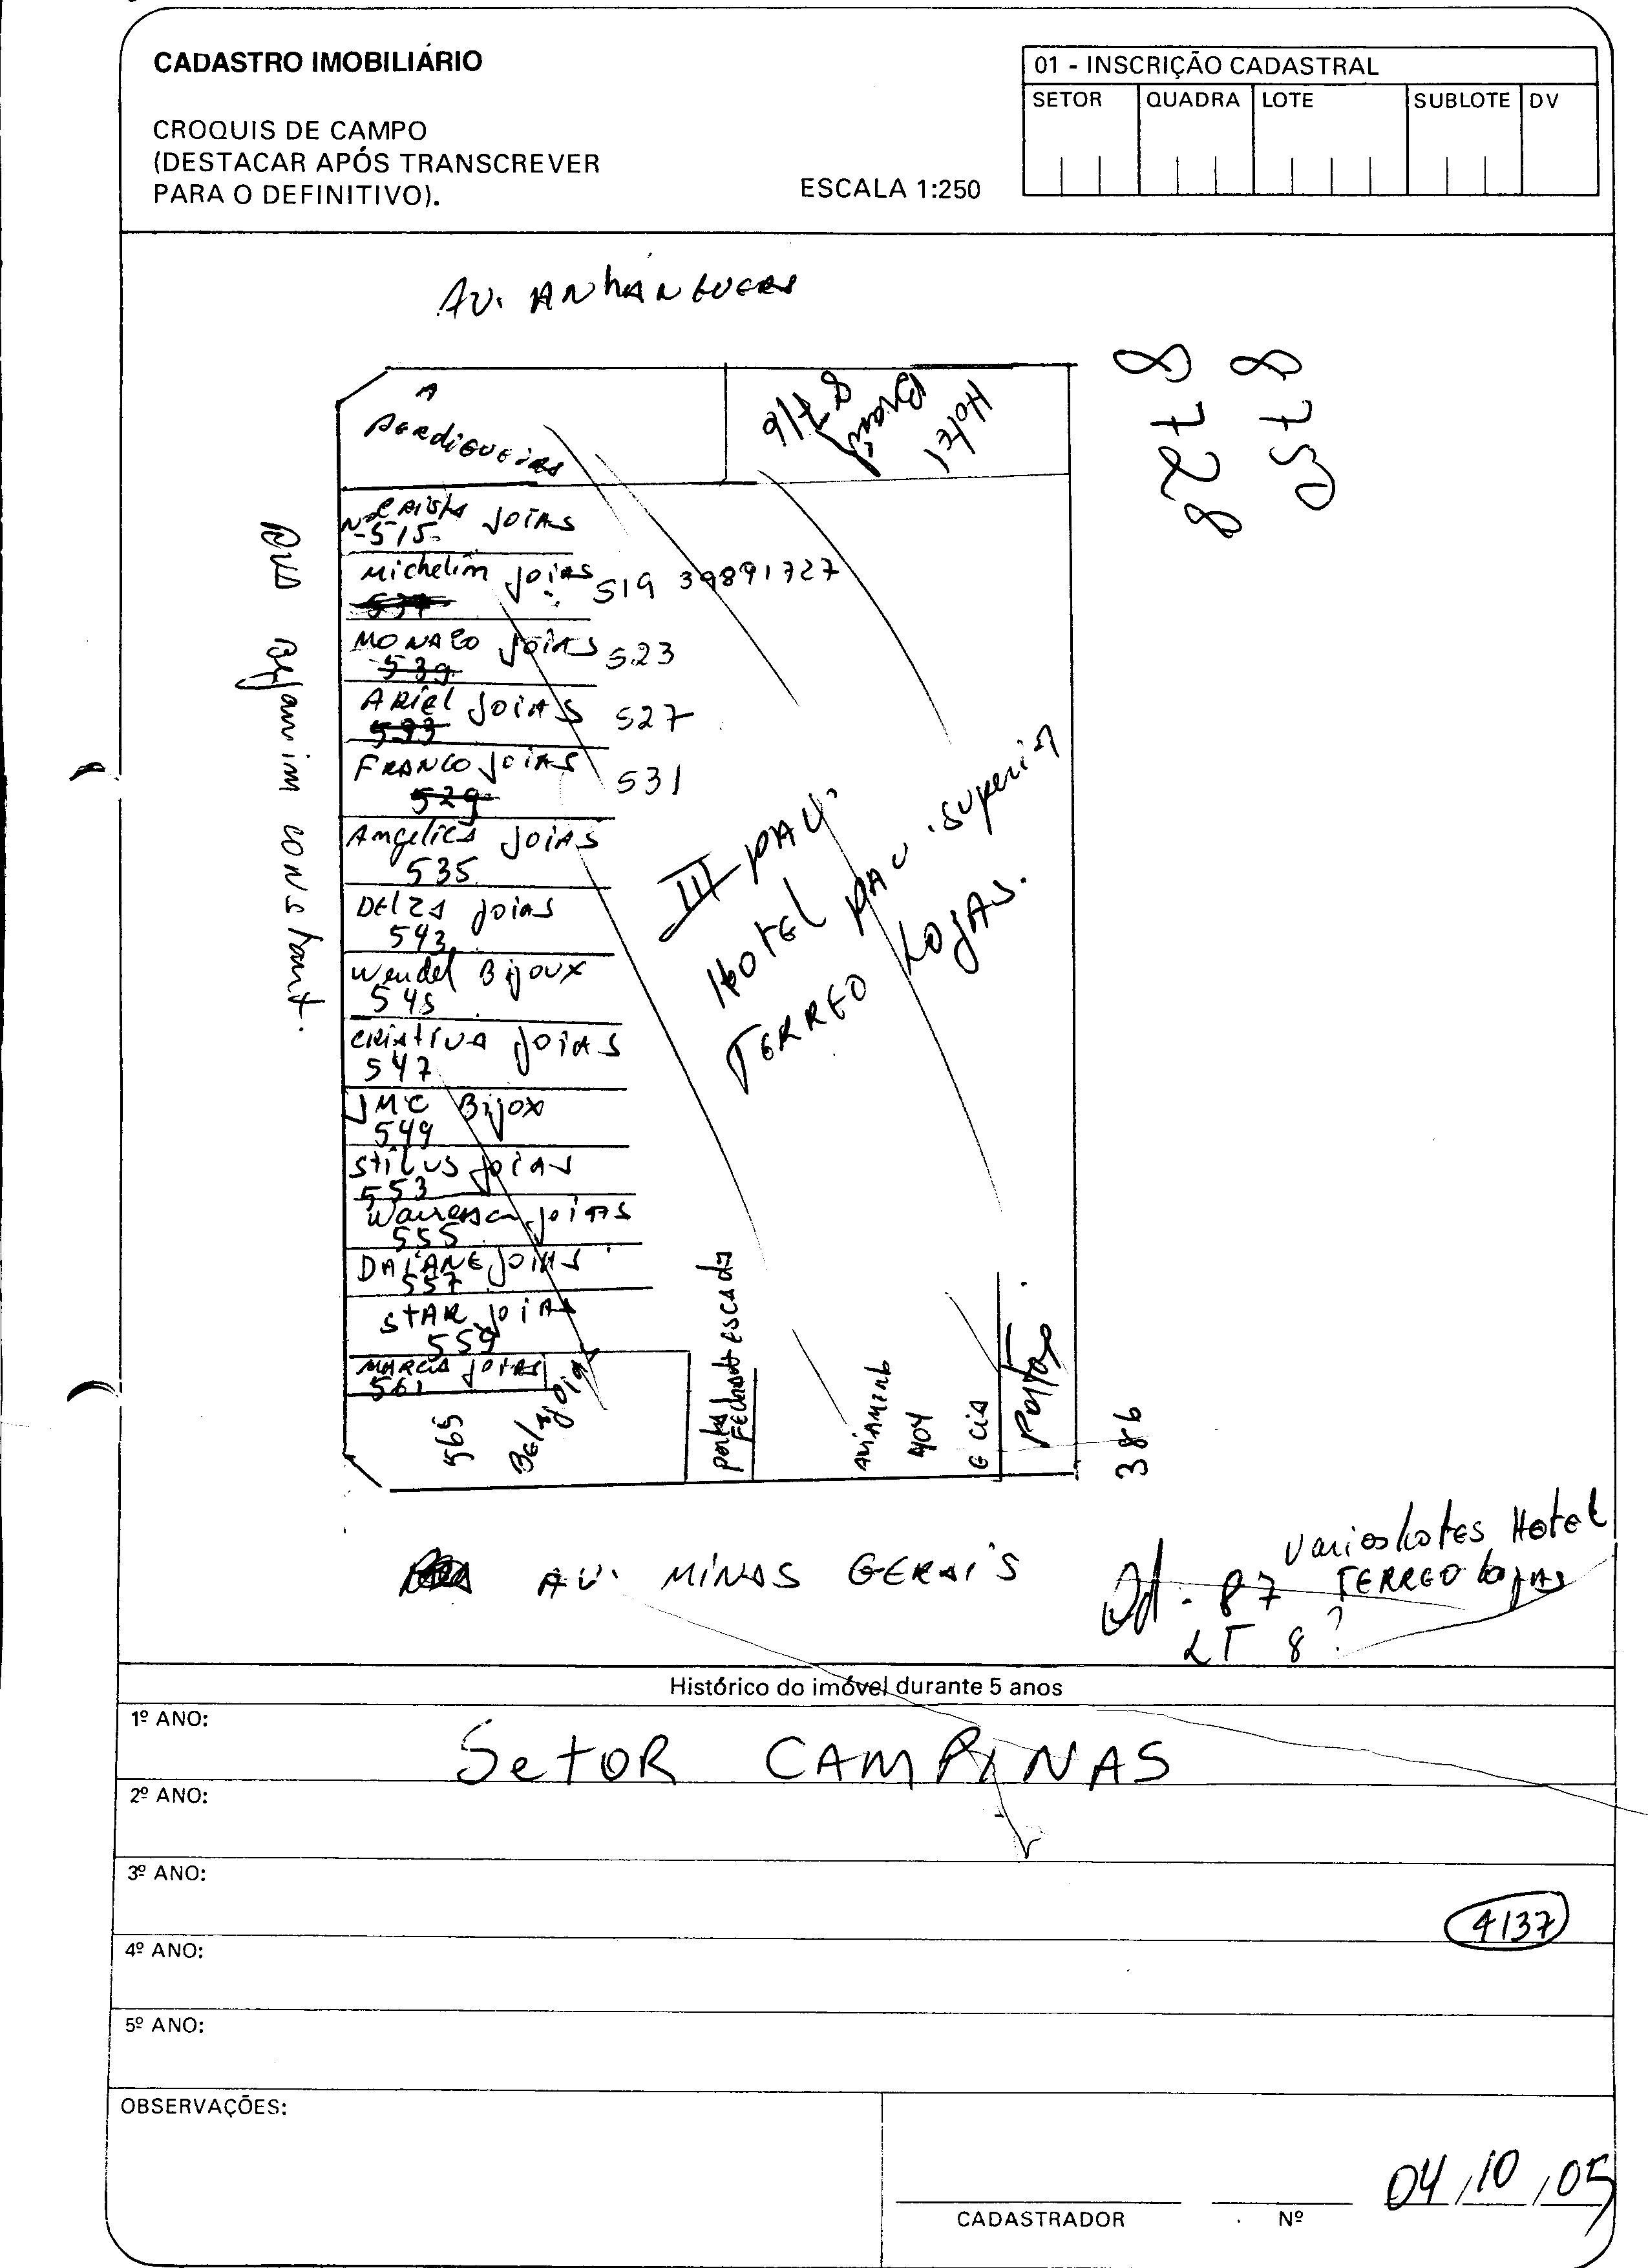 CADASTRO IMOBILIÁRIO
CROQUIS DE CAMPO
(DESTACAR APÓS TRANSCREVER
PARA O DEFINITIVO).
ESCALA 1:250
01 - INSCRIÇÃO CADASTRAL
SETOR QUADRA LOTE SUBLOTE DV
AV. ANHANGUERA
A
PERDIGUEIRA
Hotel
Brasil
8716
8728
8750
515
JOIAS
Michelin JOIAS 519 39891727
MONACO JOIAS 523
539
ARIEL JOIAS 527
533
FRANCO JOIAS 531
529
Angelica JOIAS
535
DELZA JOIAS
543
Wendel BIJOUX
545
CRIATIVA JOIAS
547
JMC BIJOX
549
STILUS JOIAS
553
JOIAS
555
DAIANE JOIAS
557
STAR JOIAS
559
MARCIA JOIAS
561
565
Bela Joia
RUA Bejamim CONStant.
III PAV.
HOTEL PAV. superior
TERREO LOJAS.
porta escada
Fechado
AVIAMENTO
404
E CIA
Portão
386
AV. MINAS GERAIS
Varios Lotes Hotel
TERREO lojas
Qd. 87
LT 8?
Histórico do imóvel durante 5 anos
1º ANO:
SETOR CAMPINAS
2º ANO:
3º ANO:
4137
4º ANO:
5º ANO:
OBSERVAÇÕES:
04/10/05
CADASTRADOR Nº